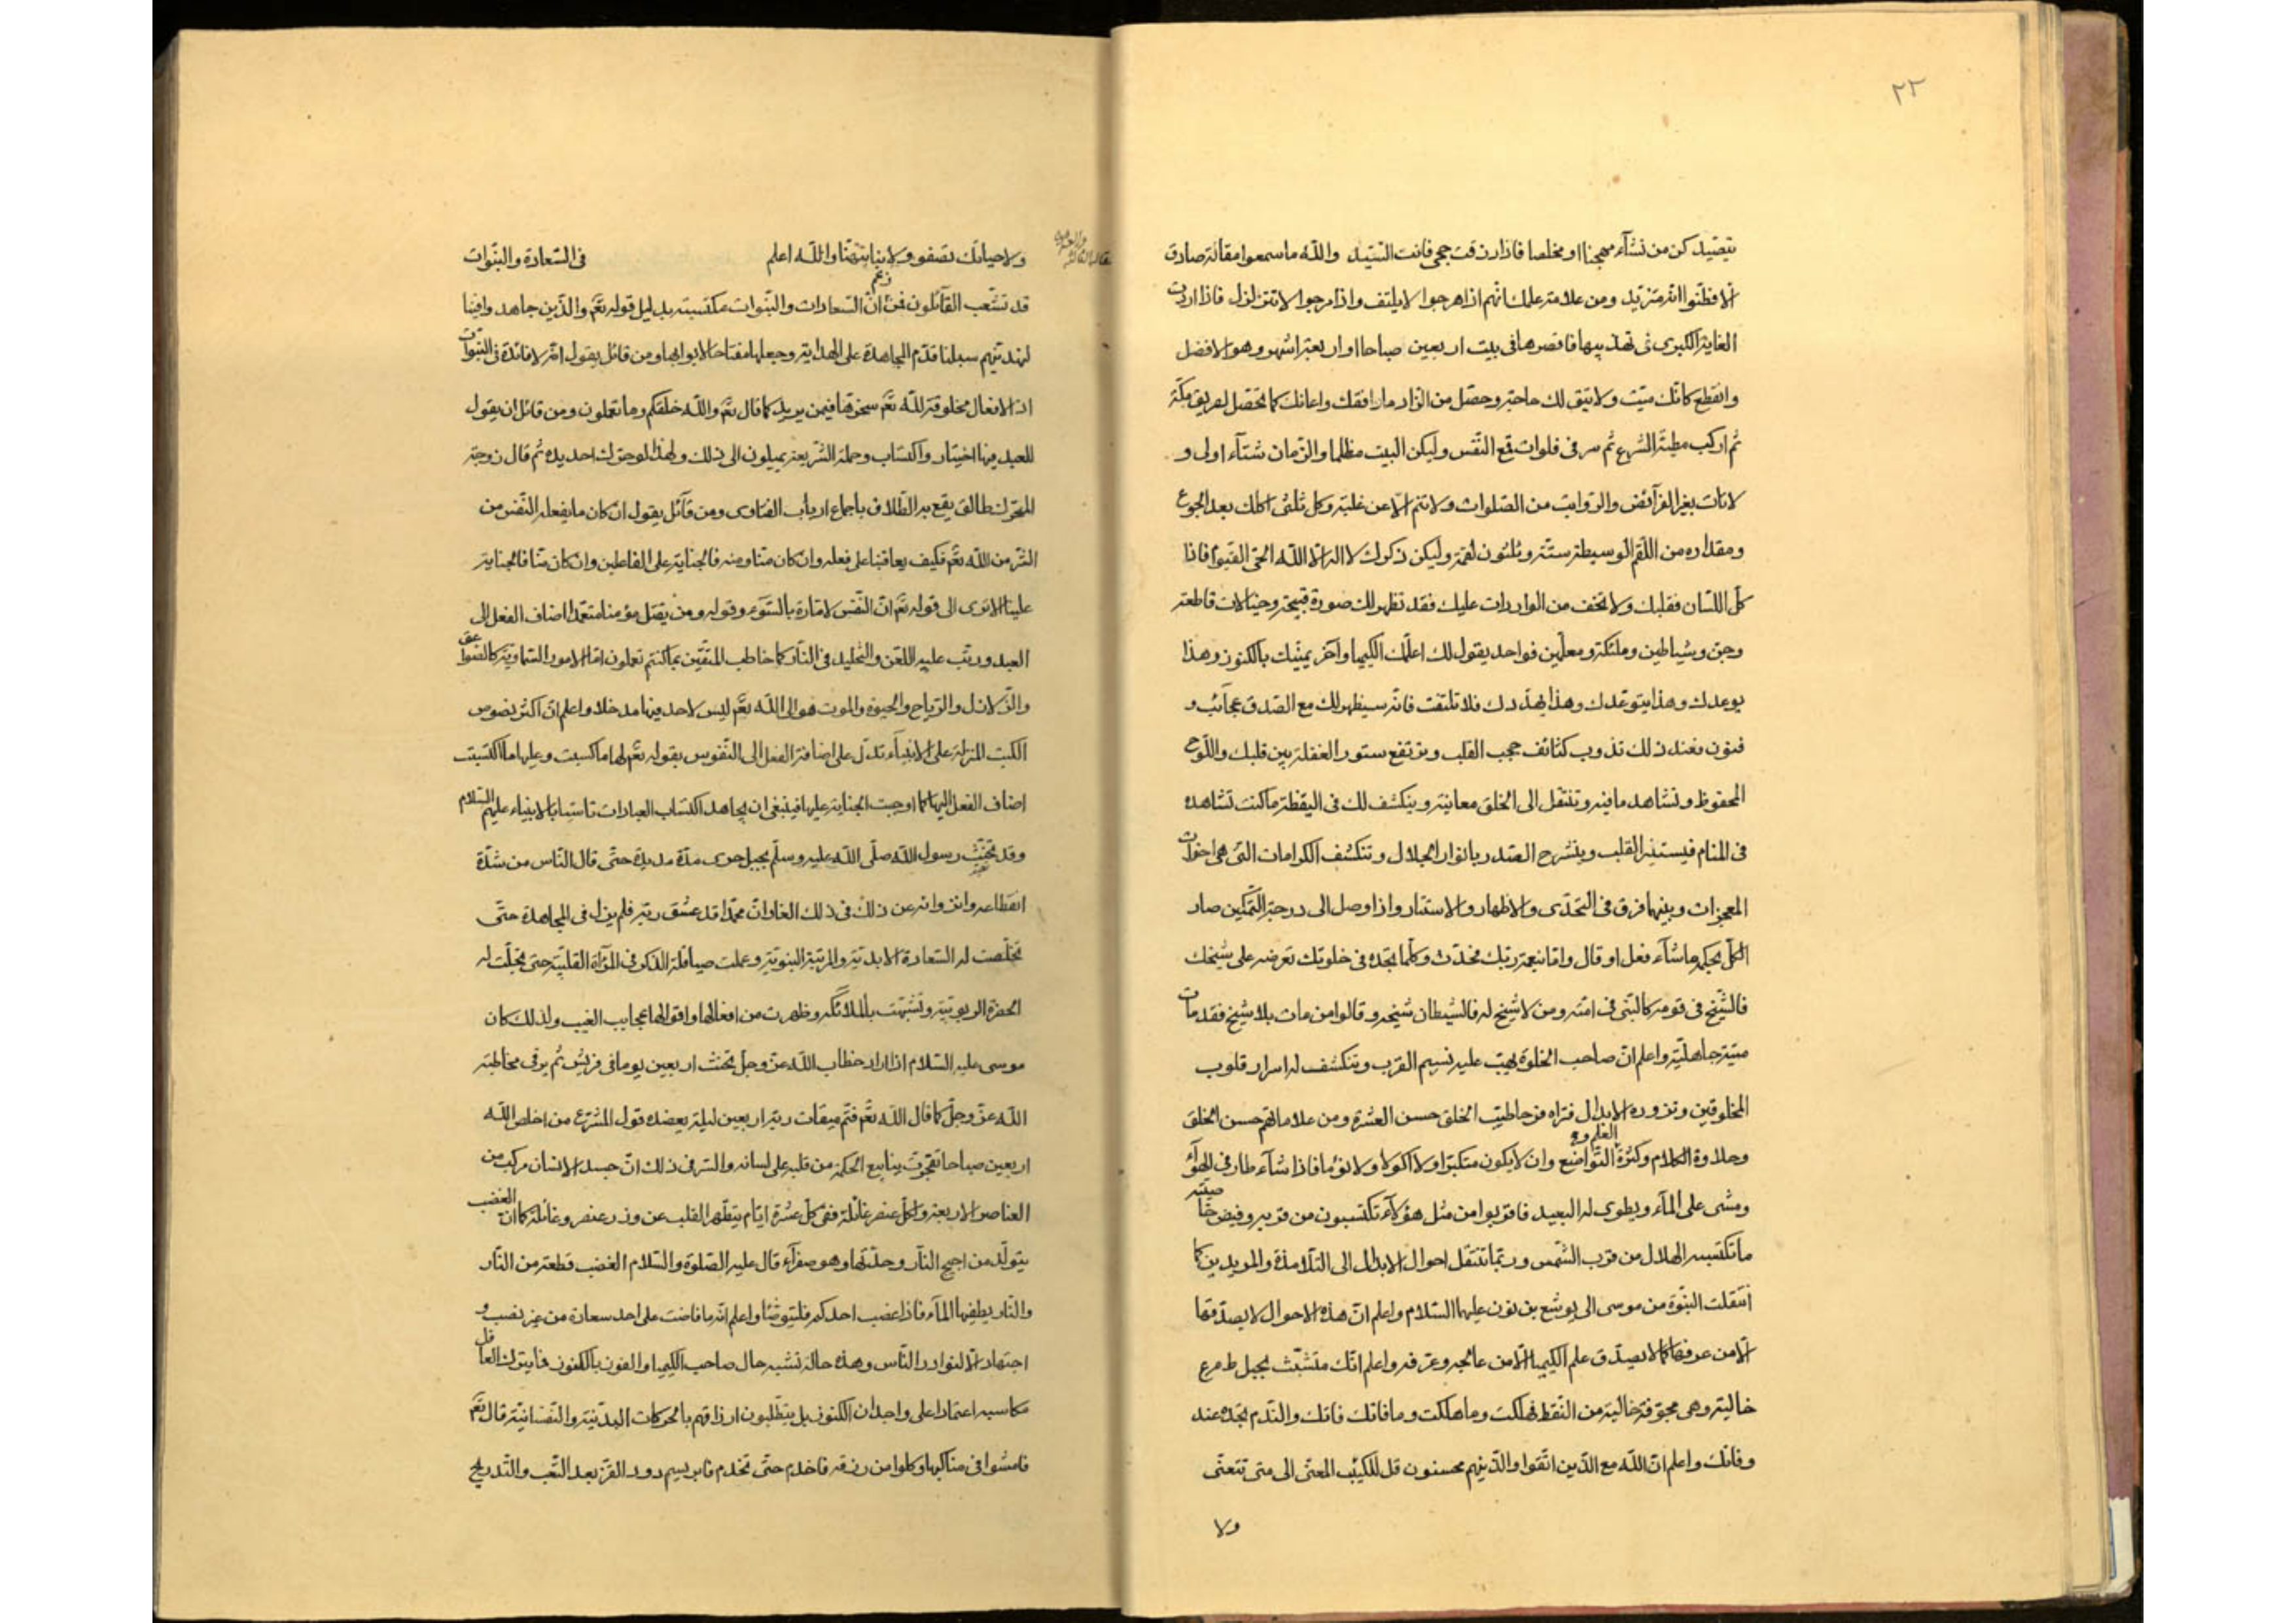 ٢٢
يتصيد كن من نشآء مهجنا او مخلصا فاذا رزقت حجى فانت السيد والله ما سمعوا مقالة صادق
الا فظنوا انه متزيد ومن علامة علمك انهم اذا هرجوا لا يلتف واذا مرجوا لا تتزلزل فاذا اردت
الغاية الكبرى فى تهذيبها فاقصرها فى بيت اربعين صباحا او اربعة اشهر وهو الافضل
وانقطع كانك ميت ولا تبق لك حاجة وحصل من الزاد ما رافقك واعانك كما تحصل لطريق مكة
ثم اركب مطية الشرع ثم سر فى فلوات قمع النفس وليكن البيت مظلما والزمان شتآء اولى و
لا تات بغير الفرآئض والرواتب من الصلوات ولا تنم الا عن غلبة وكل ثلثى اكلك بعد الجوع
ومقداره من اللقم الوسيطة ستة وثلثون لقمة وليكن ذكرك لا اله الا الله الحى القيوم فاذا
كل اللسان فقلبك ولا تخف من الواردات عليك فقد تظهر لك صورة قبيحة وخيالات قاطعة
وجن وشياطين وملئكة ومعلمين فواحد يقول لك اعلمك الكيميا وآخر يمنيك بالكنوز وهذا
يوعدك وهذا يتوعدك وهذا يهددك فلا تلتفت فانه سيظهر لك مع الصدق عجآئب و
فنون فعند ذلك تذوب كثائف حجب القلب وترتفع ستور الغفلة بين قلبك واللوح
المحفوظ وتشاهد ما فيه وتنتقل الى الخلق معانيه وينكشف لك فى اليقظة ما كنت تشاهده
فى المنام فيستنير القلب وينشرح الصدر بانوار الجلال وتنكشف الكرامات التى هى اخوات
المعجزات وبينهما فرق فى التحدى والاظهار والاستتار واذا وصل الى درجة التمكين صار
الكل بحكمه ما شآء فعل او قال واما بنعمة ربك فحدث وكلما تجده فى خلوتك تعرضه على شيخك
فالشيخ فى قومه كالنبى فى امته ومن لا شيخ له فالشيطان شيخه وقالوا من مات بلا شيخ فقد مات
ميتة جاهلية واعلم ان صاحب الخلوة يهب عليه نسيم القرب وتنكشف له اسرار قلوب
المخلوقين وتزوره الابدال فتراه فرحا طيب الخلق حسن العشرة ومن علاماتهم حسن الخلق
وحلاوة الكلام وكثرة العلم و التواضع وان لا يكون متكبرا ولا اكولا ولا نؤما فاذا شآء طار فى الهوآء
ومشى على المآء ويطوى له البعيد فاقربوا من مثل هؤلآء تكتسبون من قربه وفيض خاصيته
ما تكتسبه الهلال من قرب الشمس وربما تنتقل احوال الابدال الى التلامذة والمريدين كما
انتقلت النبوة من موسى الى يوشع بن نون عليهما السلام واعلم ان هذه الاحوال لا يصدقها
الا من عرفها كما لا يصدق علم الكيميا الا من عالجه وعرفه واعلم انك متشبث بحبل طمع
خالية وهى مجوفة خالية من النقط فهلكت وما هلكت وما فاتك فاتك والندم تجده عند
وفاتك واعلم ان الله مع الذين اتقوا والذين هم محسنون قل للكئيب المعنى الى متى تتعنى
ولا
ولا حياتك تصفو ولا بنا تتهنا والله اعلم فى السعادة والنبوات
قد تشعب القآئلون فمن زعم ان السعادات والنبوات مكتسبة بدليل قوله تعٓ والذين جاهدوا فينا
لنهدينهم سبلنا قدم المجاهدة على الهداية وجعلها مفتاحا لابوابها ومن قائل يقول انه لا فائدة فى النبوات
اذ الافعال مخلوقة لله تعٓ سخر قنا فيمن يريد كما قال تعٓ والله خلقكم وما تعملون ومن قائل ان يقول
للعبد فيها اختيار واكتساب وحملة الشريعة يميلون الى ذلك ولهذا لو حرك احد يده ثم قال زوجة
المحرك طالق يقع به الطلاق باجماع ارباب الفتاوى ومن قآئل يقول ان كان ما يفعله النفس من
الشر من الله تعٓ فكيف يعاقبنا على فعله وان كان منا ومنه فالجناية على الفاعلين وان كان منا فالجناية
علينا الا ترى الى قوله تعٓ ان النفس لامارة بالسوٓء وقوله ومن يقتل مؤمنا متعمدا اضاف الفعل الى
العبد ورتب عليه اللعن والتخليد فى النار كما خاطب المتقين بما كنتم تعملون اما الامور السماوية كالصواعق
والزلازل والرياح والحيوة والموت هو الى الله تعٓ ليس لاحد فيها مدخلا واعلم ان اكثر نصوص
الكتب المنزلة على الانبيآء تدل على اضافة الفعل الى النفوس بقوله تعٓ لها ما كسبت وعليها ما اكتسبت
اضاف الفعل اليها كما اوجبت الجناية عليها فينبغى ان يجاهد اكتساب العبادات تاسيا بالانبياء عليهم السلام
وقد تحنث رسول الله صلى الله عليه وسلم بجبل حرى مدة مديدة حتى قال الناس من شدة
انقطاعه وانزوائه عن ذلك فى ذلك الغار ان محمدا قد عشق ربه فلم يزل فى المجاهدة حتى
تخلصت له السعادة الابدية والمرتبة النبوية وعملت صياقلة الذكر فى المرآة القلبية حتى تجلت له
الحضرة الربوبية وتشبهت بالملائكة وظهرت من افعالها واقوالها عجايب الغيب ولذلك كان
موسى عليه السلام اذا اراد خطاب الله عز وجل تحنث اربعين يوما فى فريش ثم يرقى مخاطبة
الله عز وجل كما قال الله تعٓ فتم ميقات ربه اربعين ليلة يعضده قول المشرع من اخلص لله
اربعين صباحا تفجرت ينابيع الحكمة من قلبه على لسانه والسر فى ذلك ان جسد الانسان مركب من
العناصر الاربعة ولكل عنصر غائلة ففى كل عشرة ايام يتطهر القلب عن وزر عنصر وغائلة كما ان الغضب
يتولد من اجيج النار وحدتها وهو صفرآء قال عليه الصلوة والسلام الغضب قطعة من النار
والنار يطفيها المآء فاذا غضب احدكم فليتوضا واعلم انه ما فاضت على احد سعادة من غير نصب و
اجتهاد الا لنوادر الناس وهذه حالة تشبه حال صاحب الكيميا والفون بالكنوز فايترك العاقل
مكاسبه اعتمادا على واجدان الكنوز بل يتطلبون ارزاقهم بالحركات البدنية والنفسانية قال تعٓ
فامشوا فى مناكبها وكلوا من رزقه فاخدم حتى تخدم فابريسم دود القز بعد التعب والتدريج